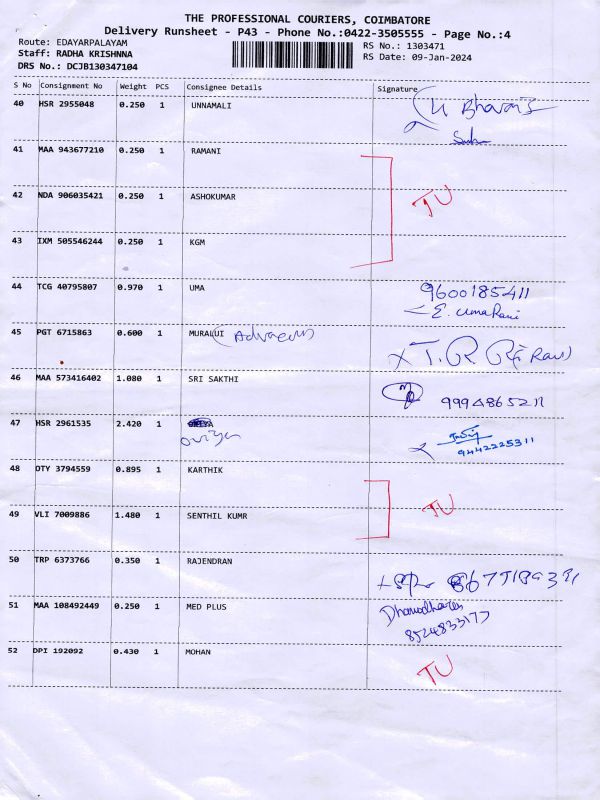 THE PROFESSIONAL COURIERS, COIMBATORE
Delivery Runsheet - P43 - Phone No.:0422-3505555 - Page No.:4
Route: EDAYARPALAYAM
RS No.: 1303471
Staff: RADHA KRISHNNA
RS Date: 09-Jan-2024
DRS No.: DCJB130347104
S No Consignment No Weight PCS Consignee Details Signature
40 HSR 2955048 0.250 1 UNNAMALI
41 MAA 943677210 0.250 1 RAMANI
42 NDA 906035421 0.250 1 ASHOKUMAR TU
43 IXM 505546244 0.250 1 KGM
44 TCG 40795807 0.970 1 UMA 9600185411
E. Uma Rani
45 PGT 6715863 0.600 1 MURALUI
46 MAA 573416402 1.080 1 SRI SAKTHI 9994865211
47 HSR 2961535 2.420 1
9442225311
48 OTY 3794559 0.895 1 KARTHIK TU
49 VLI 7009886 1.480 1 SENTHIL KUMR
50 TRP 6373766 0.350 1 RAJENDRAN
51 MAA 108492449 0.250 1 MED PLUS Dhamodharan
8524833177
52 DPI 192092 0.430 1 MOHAN TU